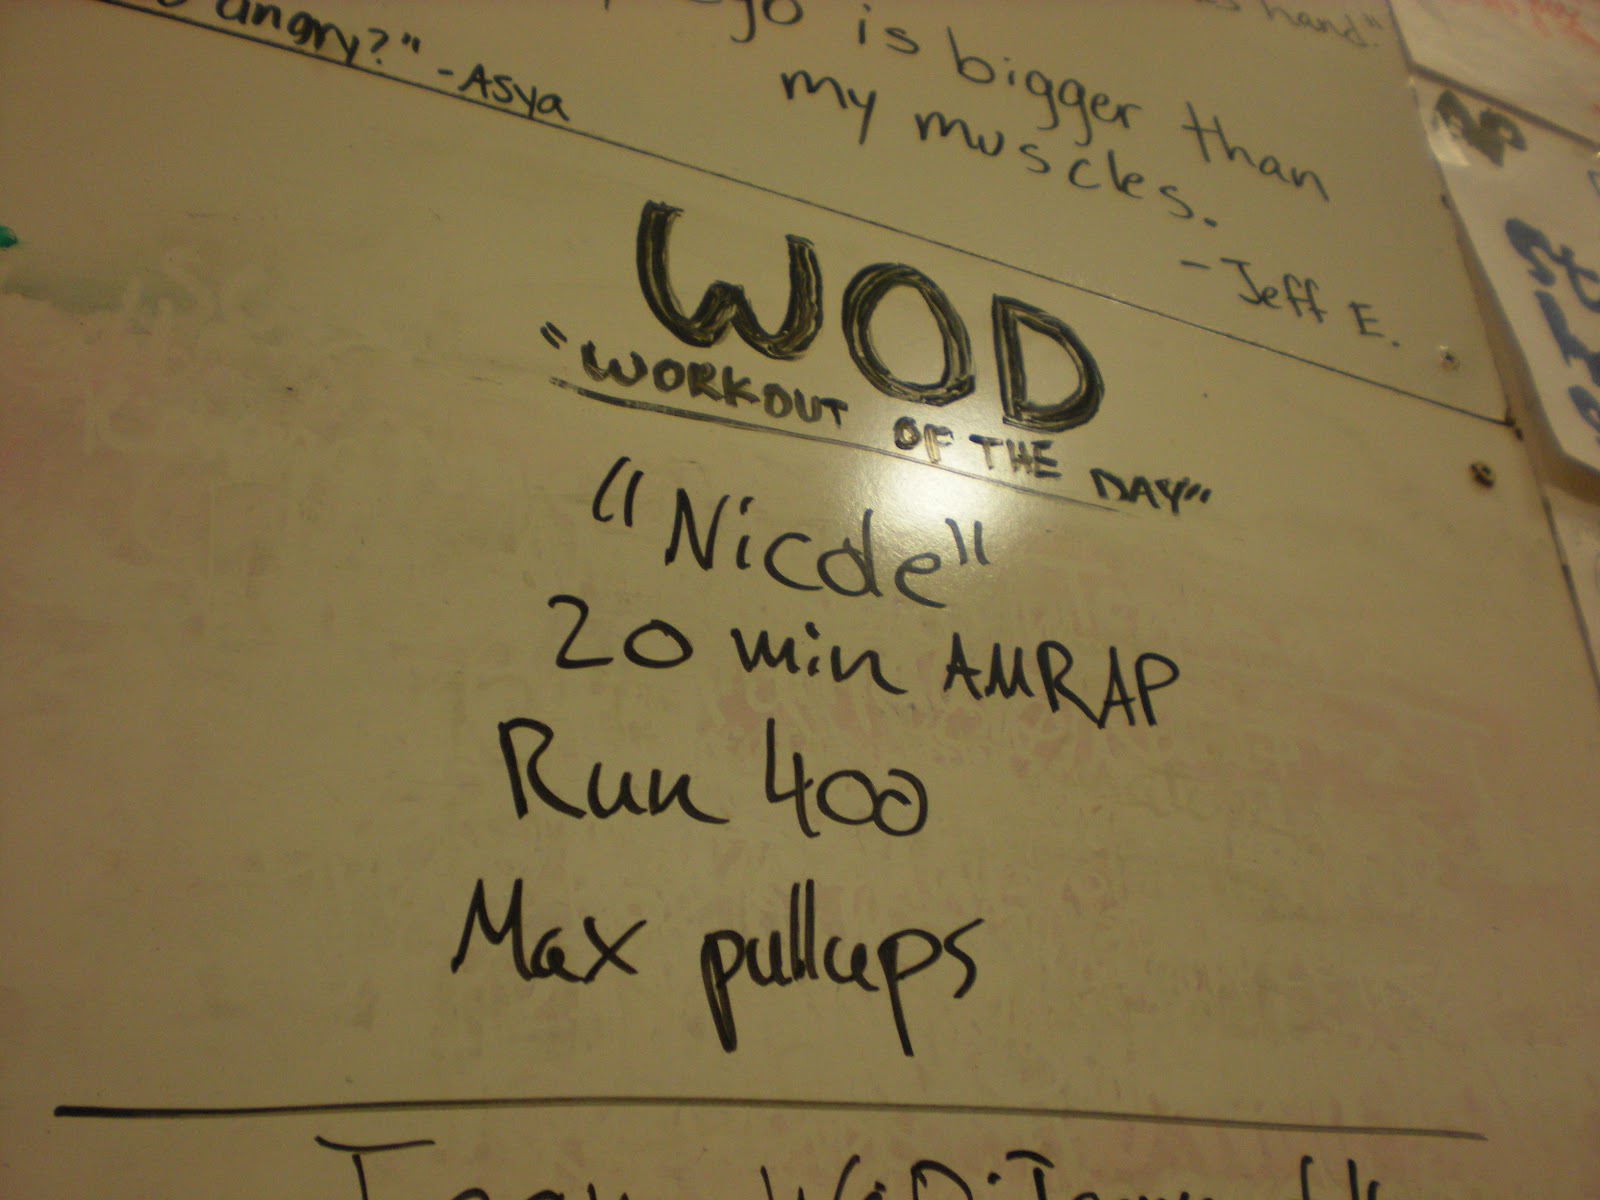 angry?" -Asya
hand."
is bigger than
my muscles.
-Jeff E.
WOD
"WORKOUT OF THE DAY"
"Nicole"
20 min AMRAP
Run 400
Max pullups